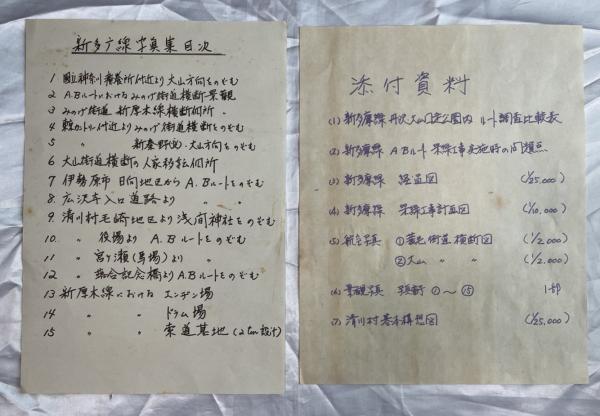 新多摩線写真集目次
1 国立神奈川療養所付近より大山方向をのぞむ
2 A.Bルートにおけるみのげ街道横断景観
3 みのげ街道 新厚木線横断個所
4 付近よりみのげ街道横断をのぞむ
5 〃 新秦野(変)・大山方向をのぞむ
6 大山街道横断の人家移転個所
7 伊勢原市 日向地区からA.Bルートをのぞむ
8 広沢寺入口道路より 〃 〃
9 清川村 地区より浅間神社をのぞむ
10 〃 役場より A.Bルートをのぞむ
11 〃 宮ヶ瀬(馬場)より 〃
12 〃 落合記念橋よりA.Bルートをのぞむ
13 新厚木線における エンヂン場
14 〃 〃 ドラム場
15 〃 〃 索道基地(2ton設計)
添付資料
(1) 新多摩線 丹沢大山国定公園内 ルート調査比較表
(2) 新多摩線 A.Bルート 架線工事実施時の問題点
(3) 新多摩線 経過図 (1/25.000)
(4) 新多摩線 架線工事計画図 (1/10,000)
(5) 統合写真 ①蓑毛街道横断図 (1/2.000)
②大山 〃 〃 (1/2.000)
(6) 景観写真 写真番号 ①〜⑮ 1部
(7) 清川村基本構想図 (1/25.000)